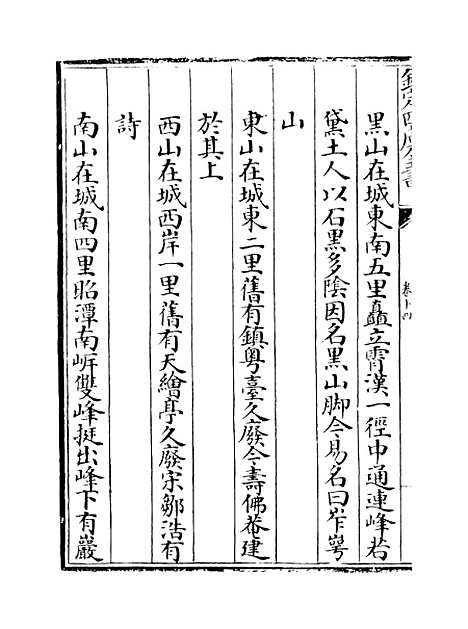 欽定四庫全書
卷十四
黑山在城東南五里矗立霄漢一徑中通連峰若
黛土人以石黑多陰因名黑山脚今易名曰岝崿
山
東山在城東二里舊有鎮粤臺久廢今壽佛菴建
於其上
西山在城西岸一里舊有天繪亭久廢宋鄒浩有
詩
南山在城南四里昭潭南岸雙峰挺出峰下有巖